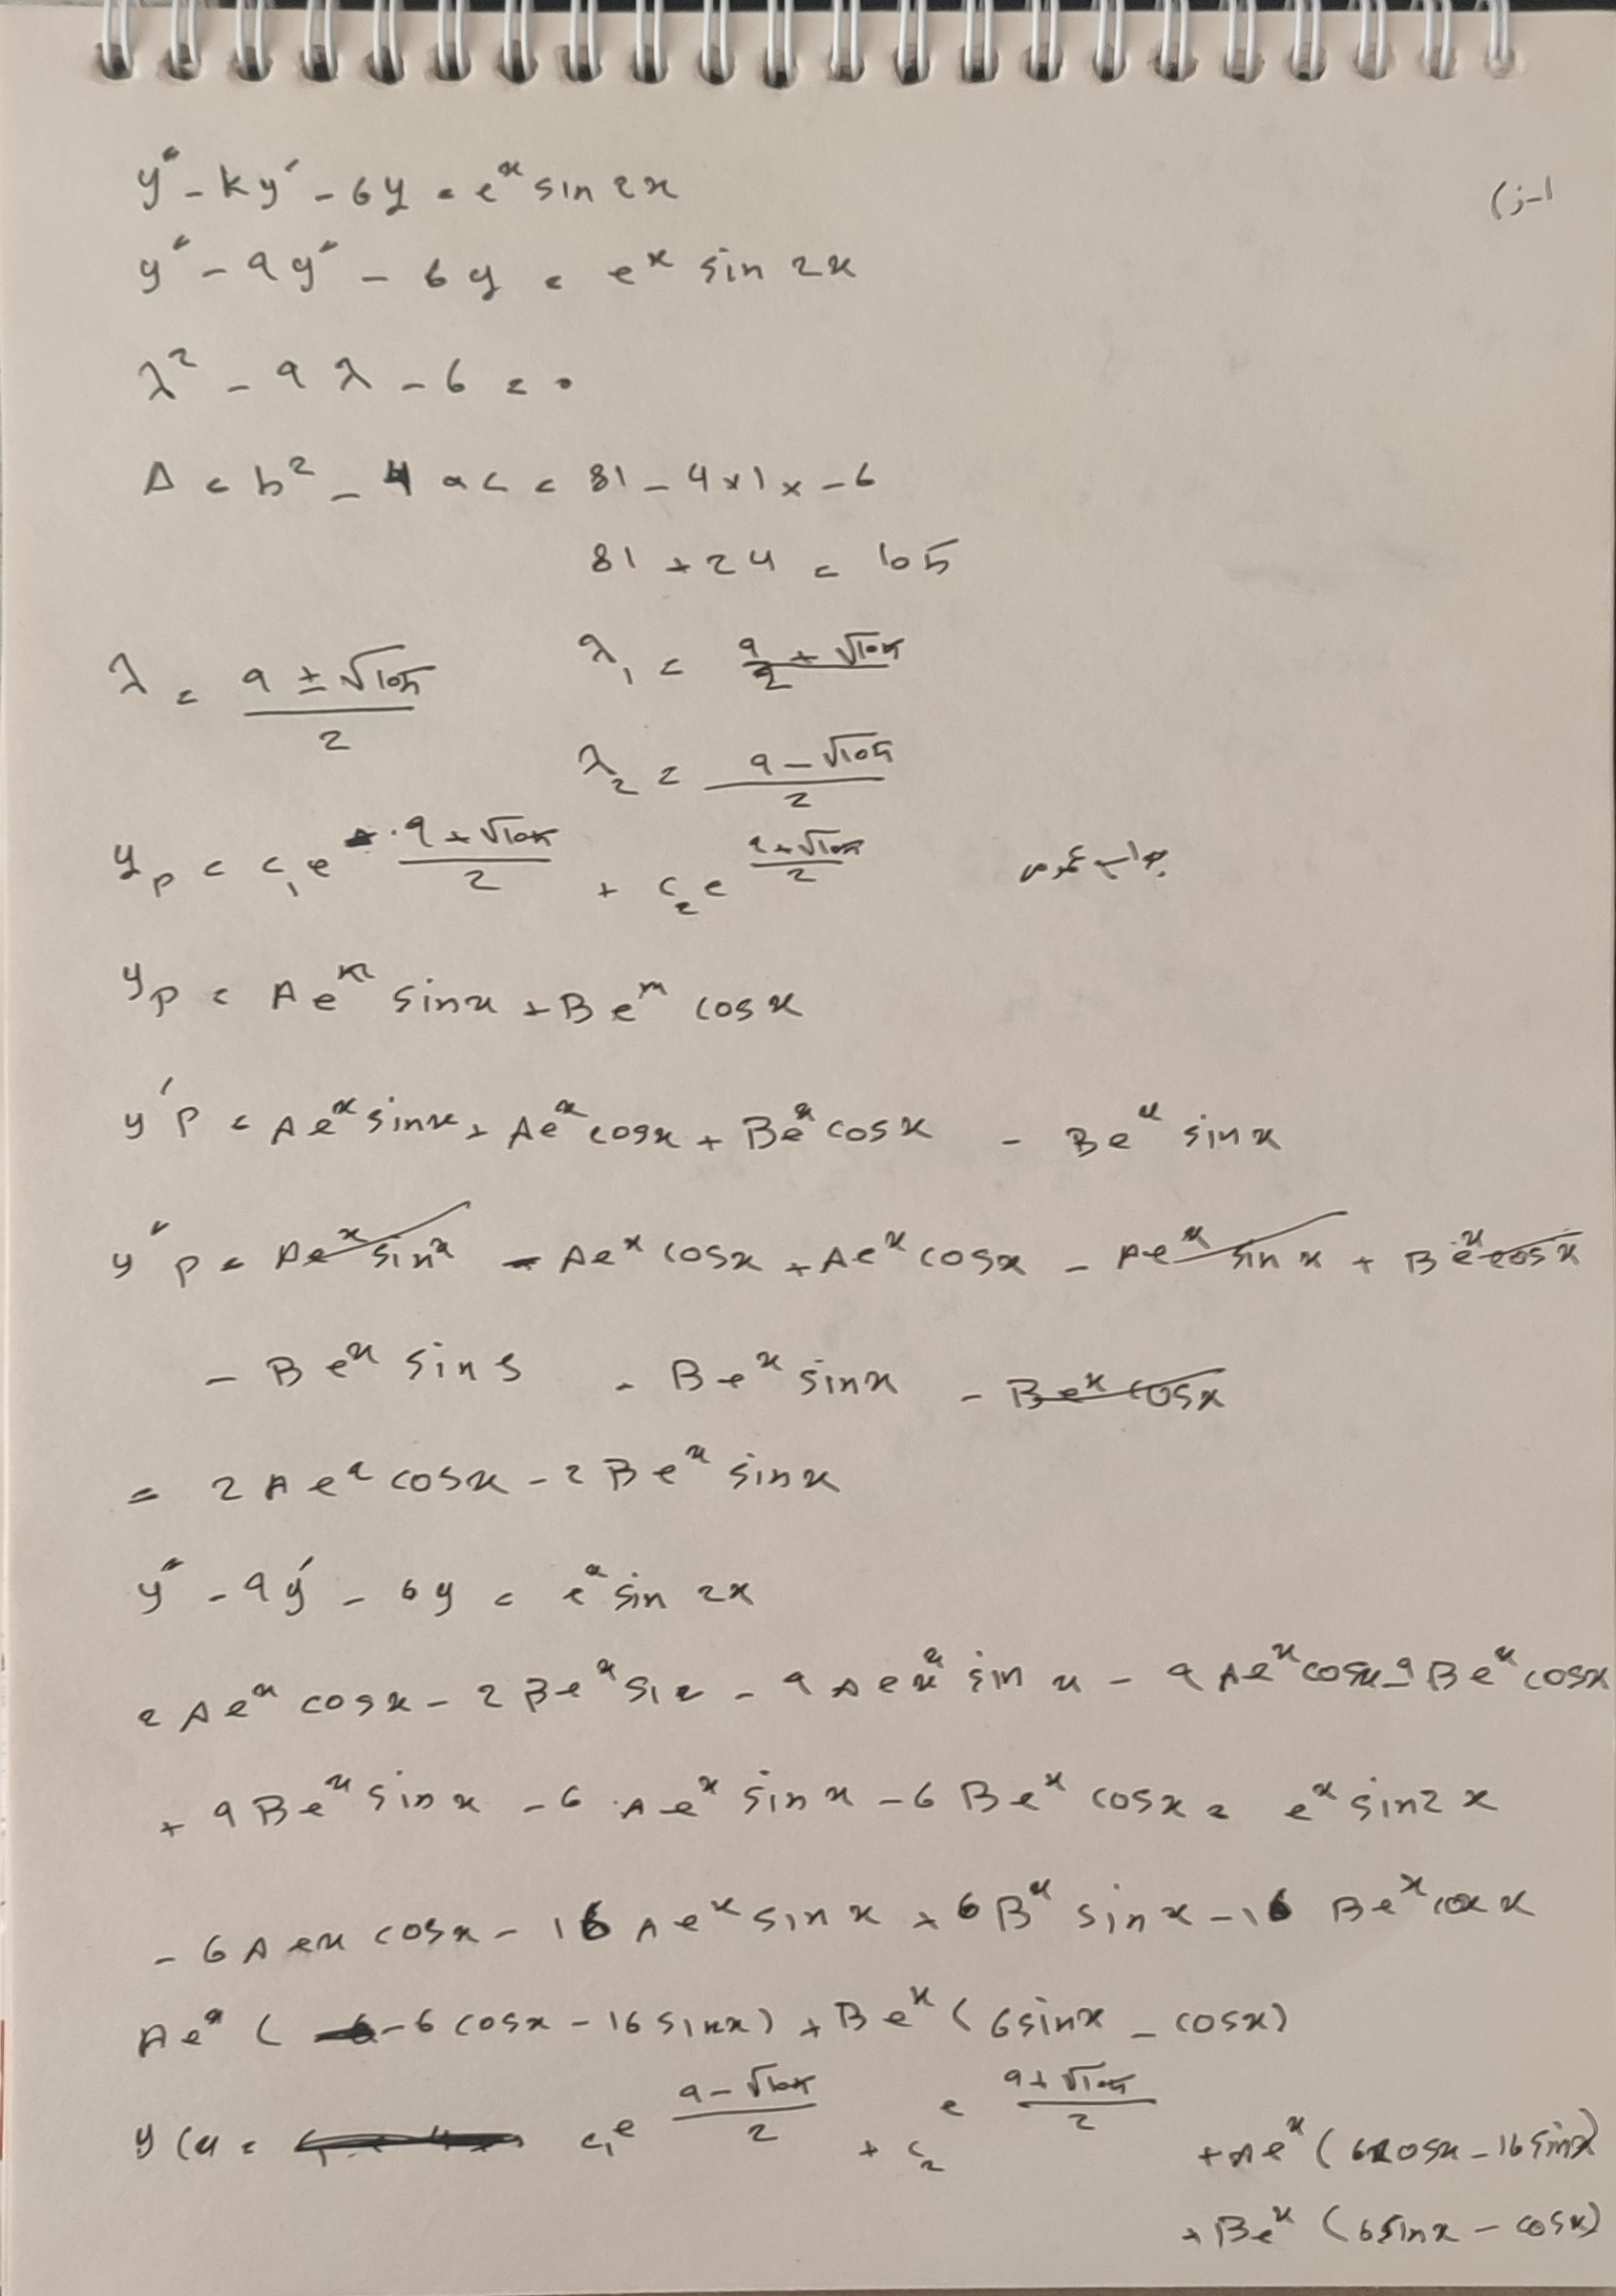 ۱-ز)
y" - ky' - 6y = e^x sin 2x
y" - 9y" - 6y = e^x sin 2x
λ² - 9λ - 6 = 0
Δ = b² - 4ac = 81 - 4×1×-6
81 + 24 = 105
λ = (9 ± √105)/2 λ₁ = (9 + √105)/2
λ₂ = (9 - √105)/2
y_p = c₁e^((9 + √105)/2) + c₂e^((9 + √105)/2) جواب عمومی
y_p = Ae^x sinx + Be^x cosx
y'p = Ae^x sinx + Ae^x cosx + Be^x cosx - Be^x sinx
y"p = Ae^x sinx - Ae^x cosx + Ae^x cosx - Ae^x sinx + Be^x cosx
- Be^x sin s - Be^x sinx - Be^x cosx
= 2Ae^x cosx - 2Be^x sinx
y" - 9y' - 6y = e^x sin 2x
2Ae^x cosx - 2Be^x si - 9Ae^x sin x - 9Ae^x cosx - 9Be^x cosx
+ 9Be^x sinx - 6Ae^x sinx - 6Be^x cosx = e^x sin2x
- 6Aex cosx - 16Ae^x sinx + 6B^x sinx - 16 Be^x cosx
Ae^x ( -6cosx - 16sinx) + Be^x (6sinx - cosx)
y(x = c₁e^((9 - √105)/2) + c₂ e^((9 + √105)/2) + Ae^x (6cosx - 16sinx)
+ Be^x (6sinx - cosx)